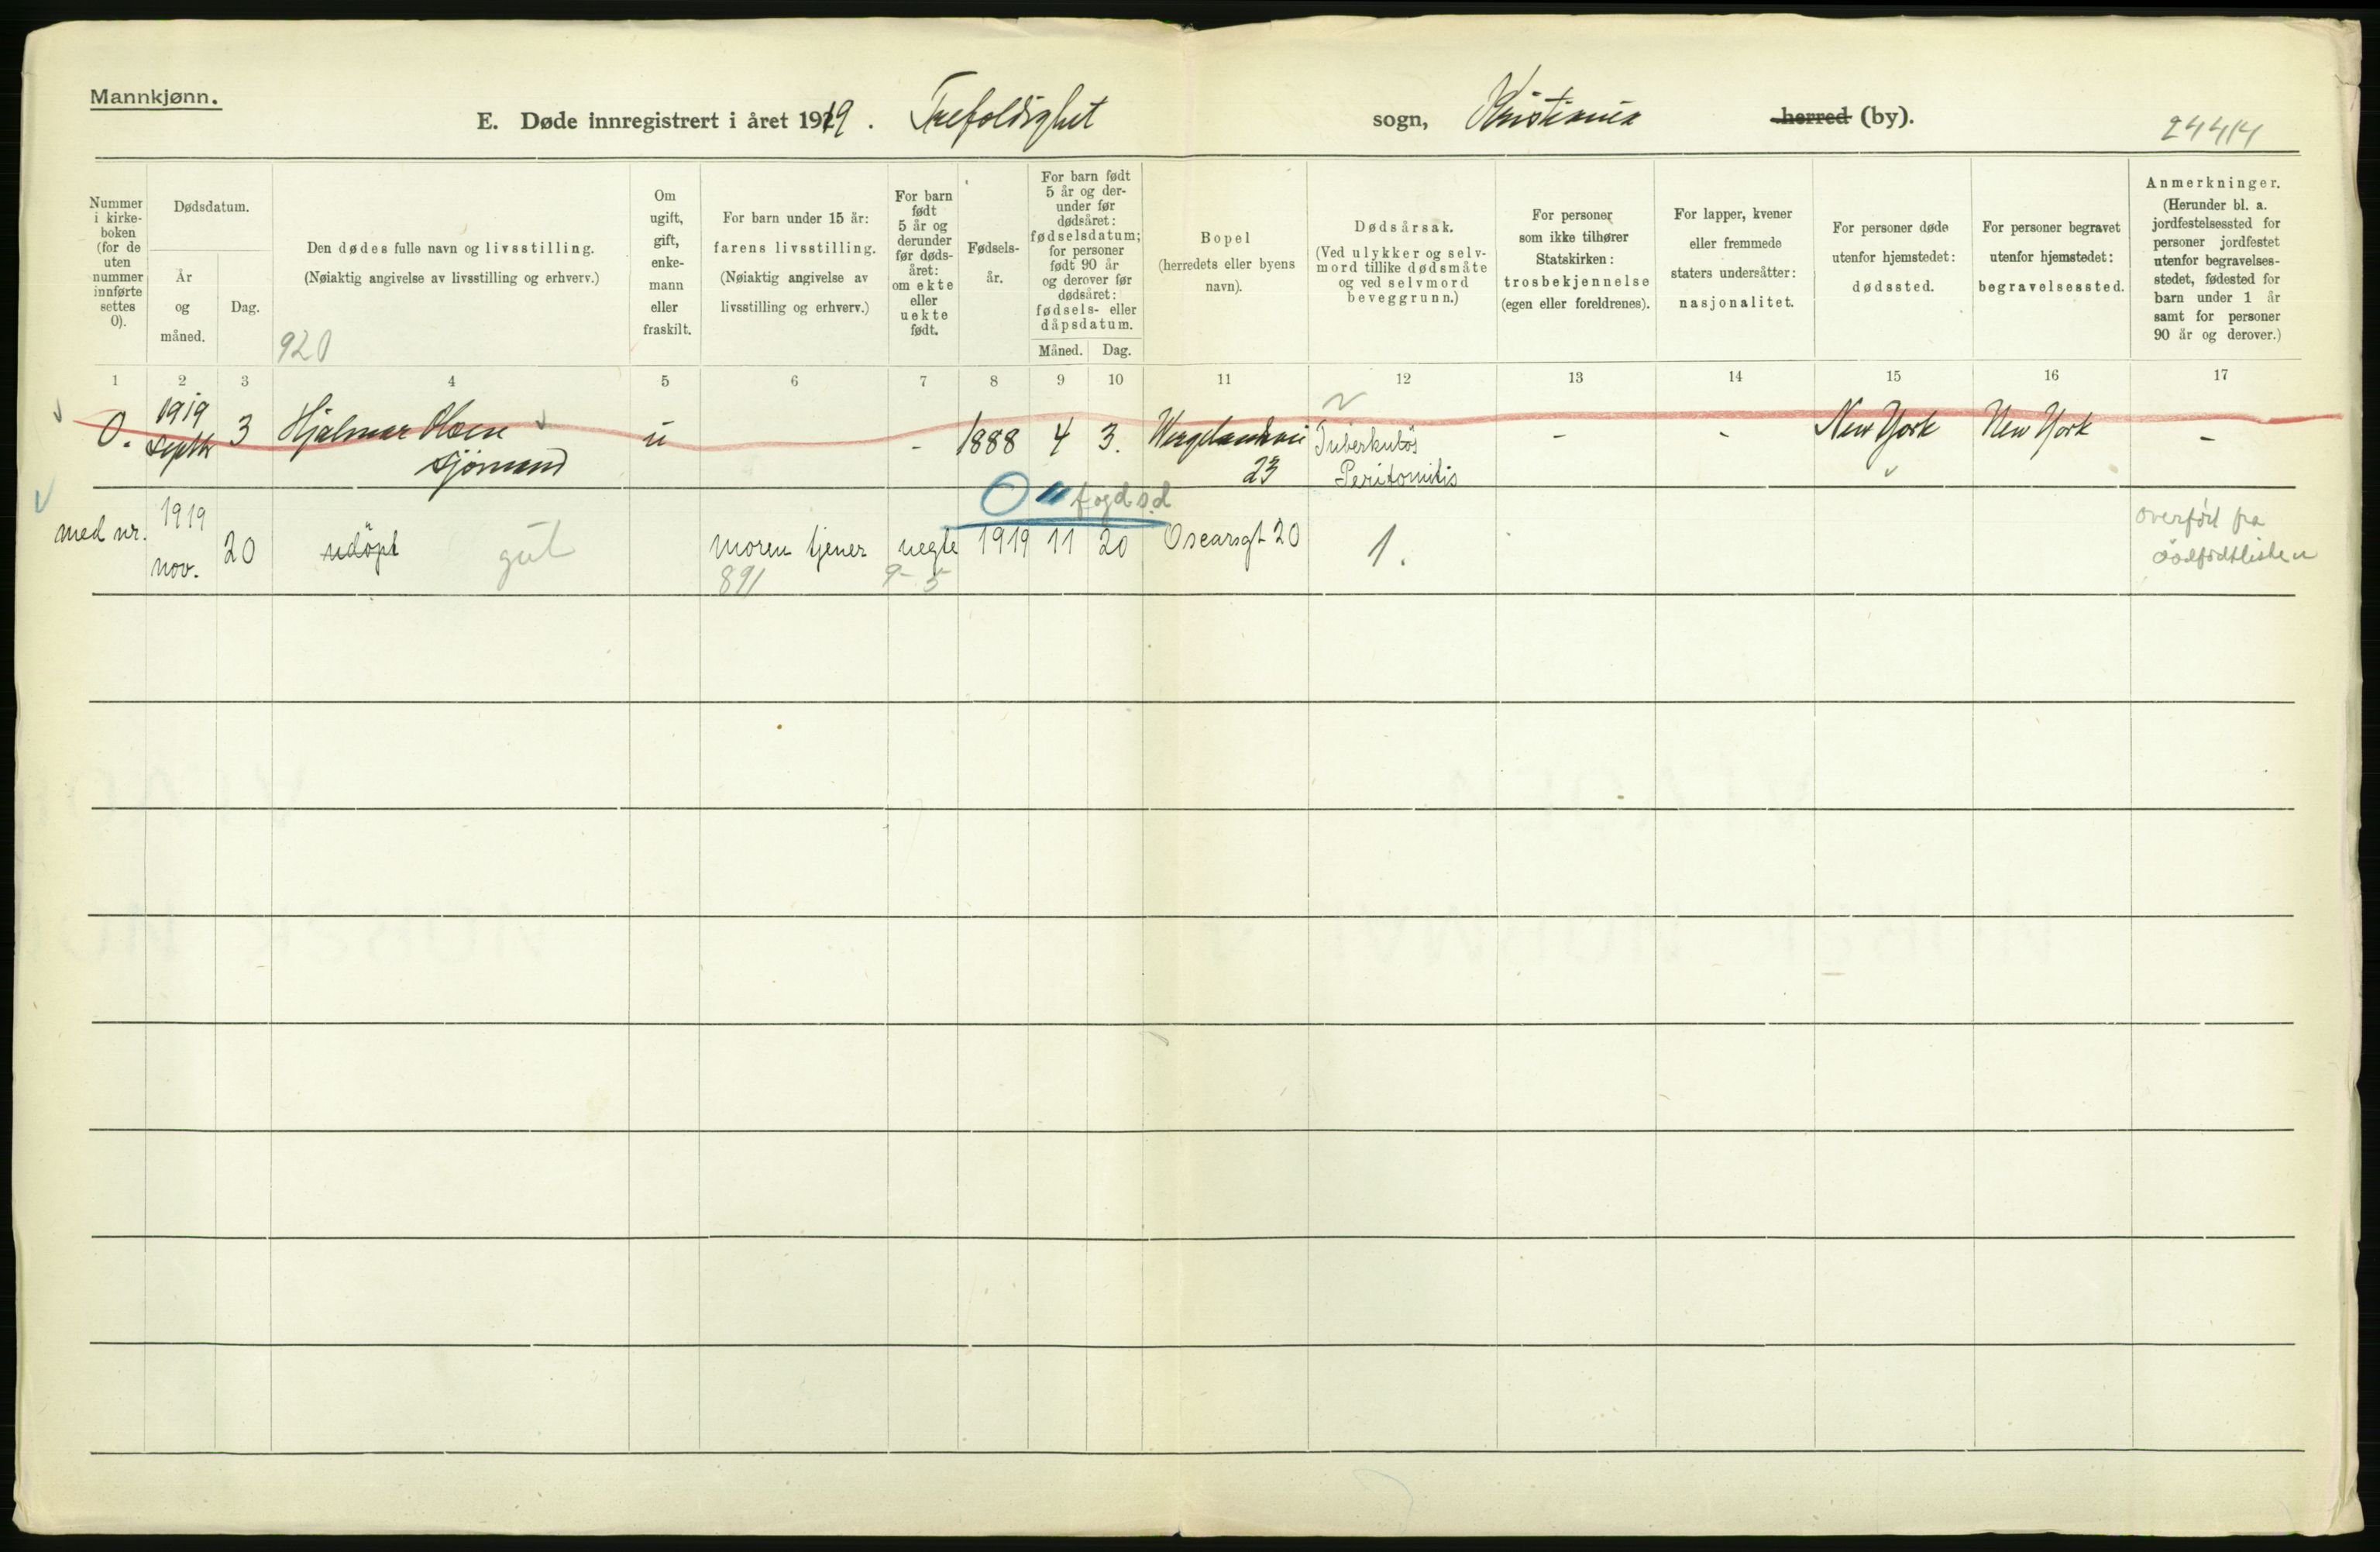 Mannkjønn.
E. Døde innregistrert i året 1919. Trefoldighet sogn, Kristiania herred (by).
24414
Nummer i kirke- boken (for de uten nummer innførte settes 0).
Dødsdatum.
År og måned.
Dag.
Den dødes fulle navn og livsstilling.
(Nøiaktig angivelse av livsstilling og erhverv.)
920
Om ugift, gift, enke- mann eller fraskilt.
For barn under 15 år:
farens livsstilling.
(Nøiaktig angivelse av
livsstilling og erhverv.)
For barn født 5 år og derunder før døds- året: om ekte eller uekte født.
Fødsels- år.
For barn født 5 år og der- under før dødsåret: fødselsdatum; for personer født 90 år og derover før dødsåret: fødsels- eller dåpsdatum.
Måned.
Dag.
Bopel
(herredets eller byens
navn).
Dødsårsak.
(Ved ulykker og selv-
mord tillike dødsmåte
og ved selvmord
beveggrunn.)
For personer
som ikke tilhører
Statskirken:
trosbekjennelse
(egen eller foreldrenes).
For lapper, kvener
eller fremmede
staters undersåtter:
nasjonalitet.
For personer døde
utenfor hjemstedet:
dødssted.
For personer begravet
utenfor hjemstedet:
begravelsessted.
Anmerkninger.
(Herunder bl. a.
jordfestelsessted for
personer jordfestet
utenfor begravelses-
stedet, fødested for
barn under 1 år
samt for personer
90 år og derover.)
1 2 3 4 5 6 7 8 9 10 11 12 13 14 15 16 17
0. 1919 Septbr 3 Hjalmar Olsen u - 1888 4 3. Wergelandsvei Tuberkuløs - - New York New York -
sjömand 23 Peritonitis
0 " fogdsd
med nr. 1919 nov. 20 udöpt gut moren tjener uegte 1919 11 20 Oscarsgt 20 1. overført fra
891 9-5 dödfödtlisten